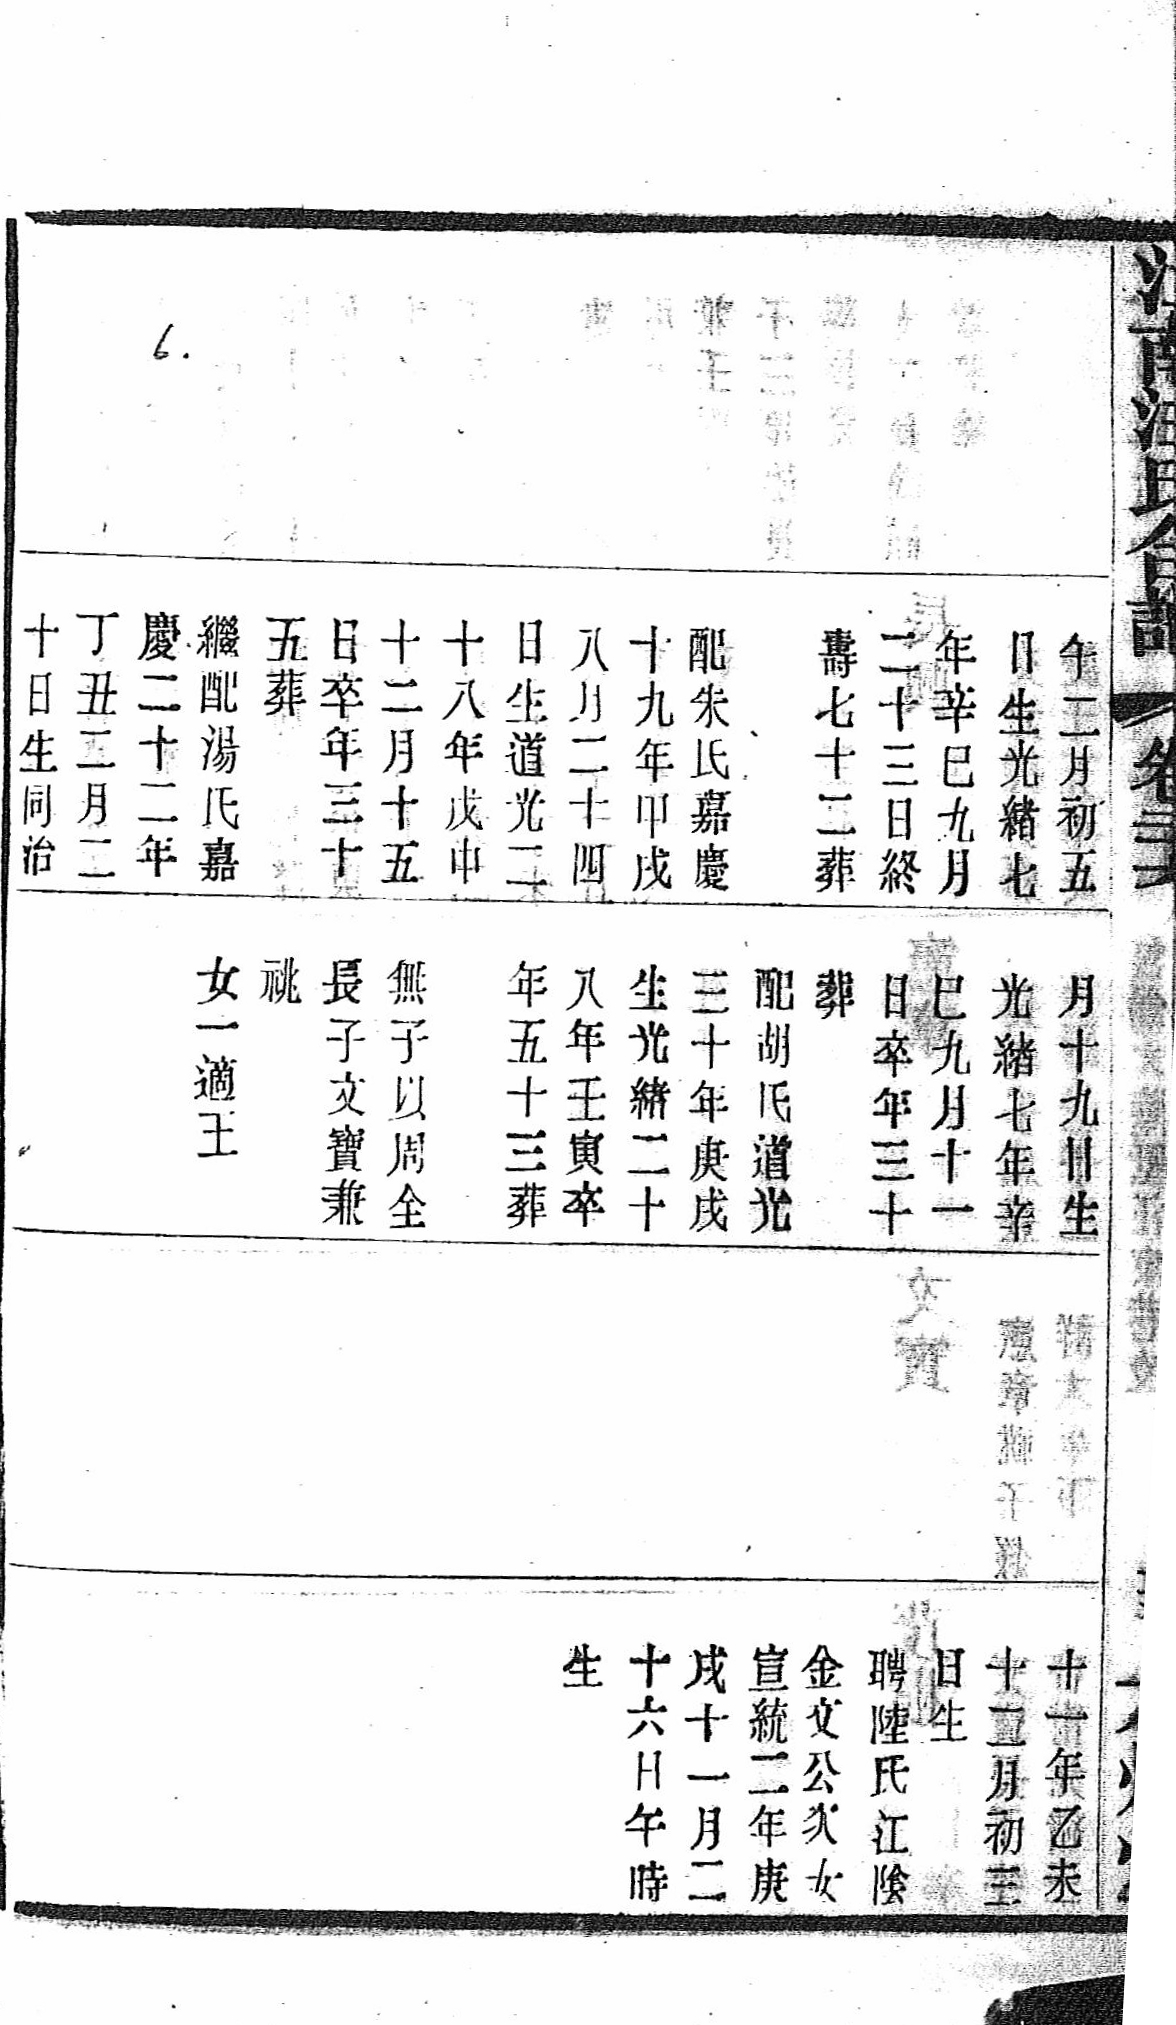 6.
午二月初五
日生光緒七
年辛巳九月
二十三日終
壽七十二葬
配朱氏嘉慶
十九年甲戌
八月二十四
日生道光二
十八年戊申
十二月十五
日卒年三十
五葬
繼配湯氏嘉
慶二十二年
丁丑二月二
十日生同治
月十九日生
光緒七年辛
巳九月十一
日卒年三十
葬
配胡氏道光
三十年庚戌
生光緒二十
八年壬寅卒
年五十三葬
無子以周全
長子文寶兼
祧
女一適王
十一年乙未
十二月初三
日生
聘陸氏江陰
金文公次女
宣統二年庚
戌十一月二
十六日午時
生